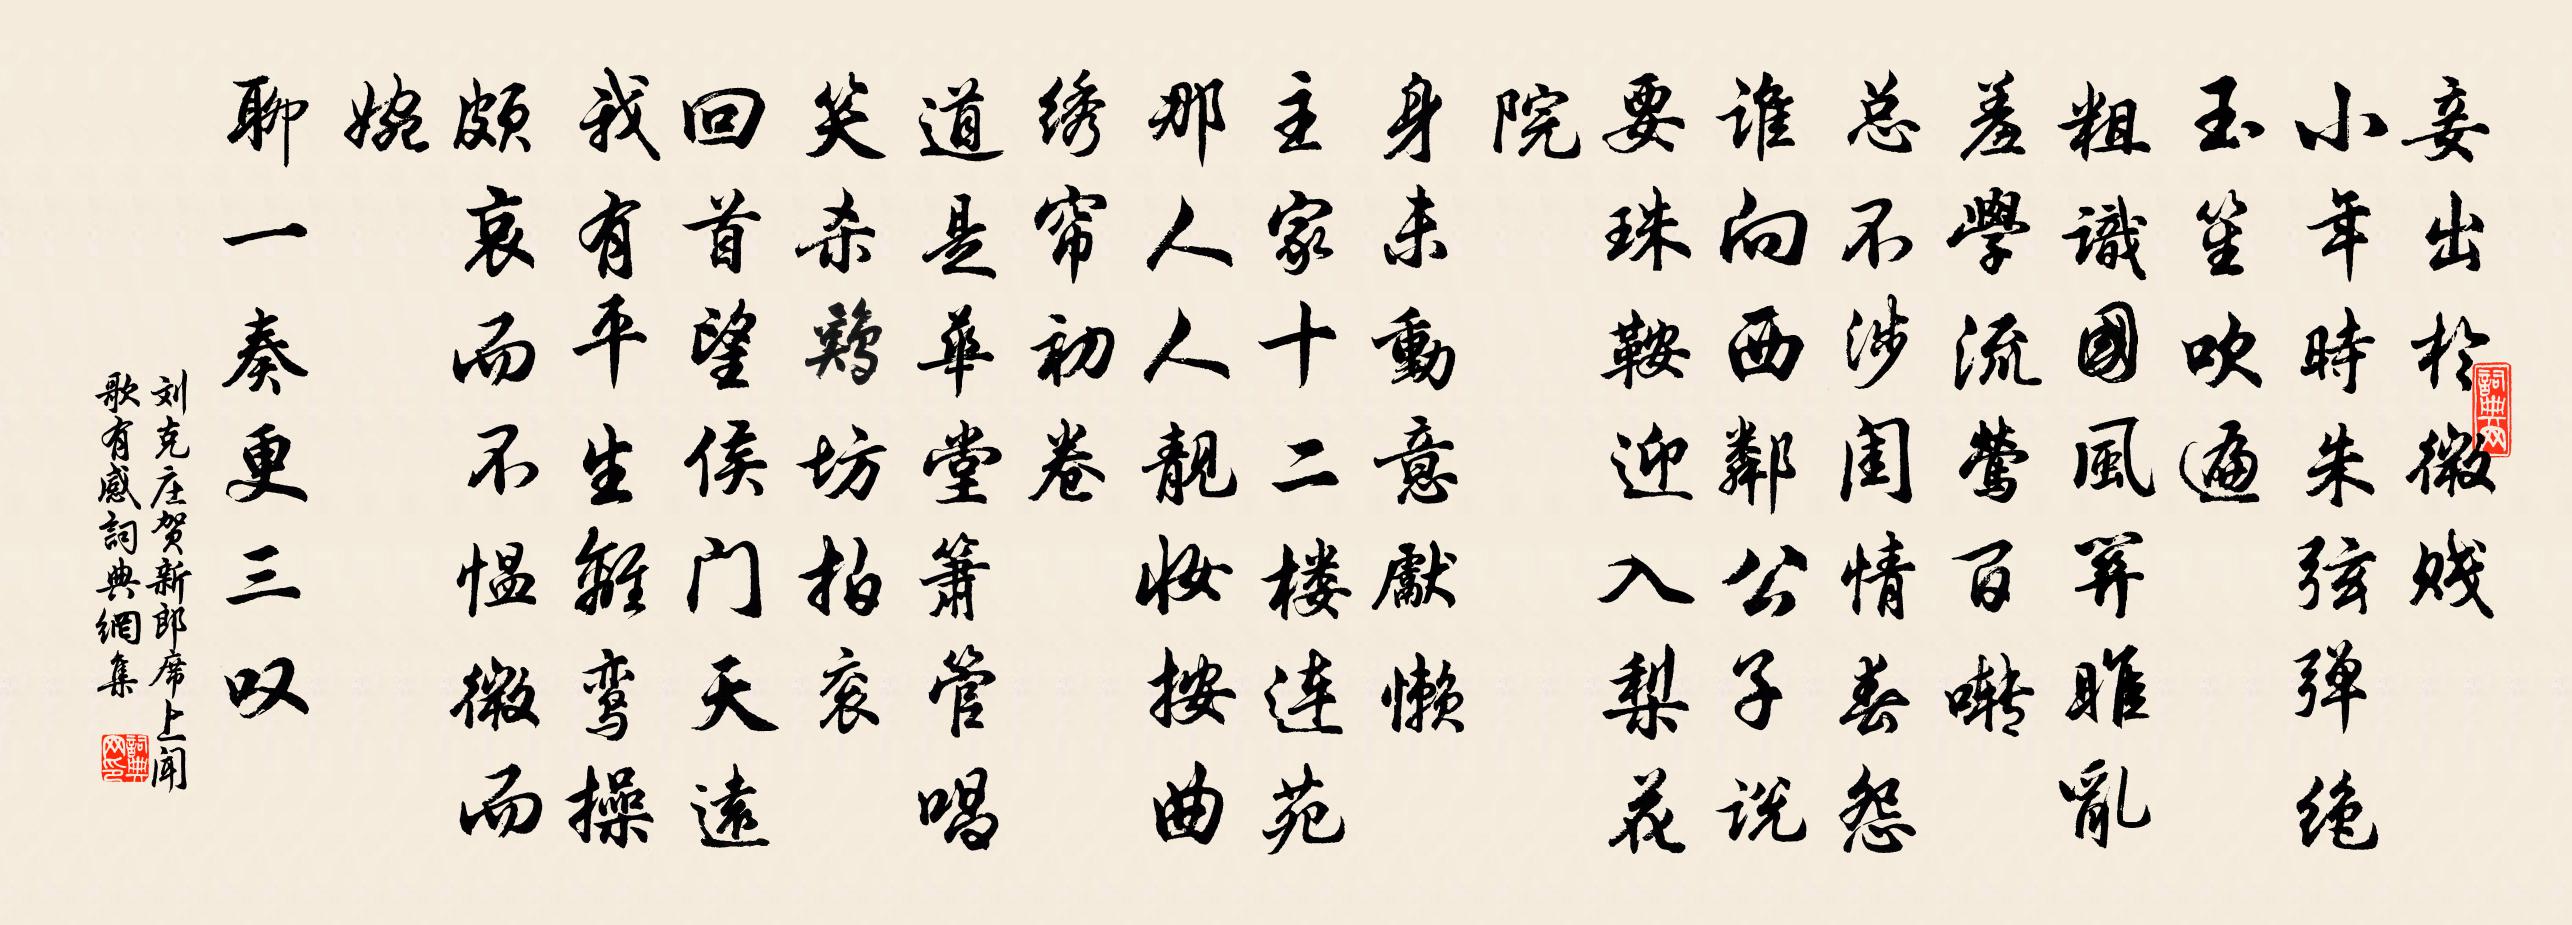 妾出於微贱
小年時朱弦弹绝
玉笙吹遍
粗識國風關雎亂
羞學流莺百啭
总不涉闺情春怨
谁向西鄰公子说
要珠鞍迎入梨花
院
身未動意獻懒
主家十二楼连苑
那人人靓妆按曲
绣帘初卷
道是華堂箫管唱
笑杀鶏坊拍衮
回首望侯门天遠
我有平生離鸾操
颇哀而不愠微而
婉
聊一奏更三叹
刘克庄贺新郎席上闻
歌有感詞典網集
詞典网
詞典网印